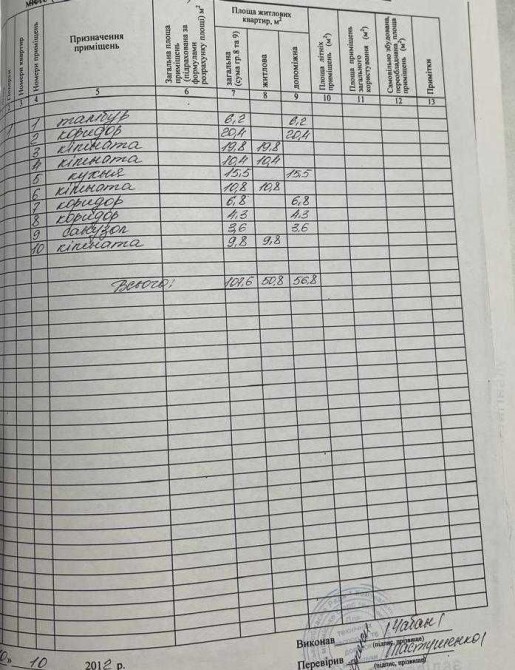 Номери квартир
Номери приміщень
Призначення приміщень
Загальна площа приміщень (підрахована за формулами розрахунку площі) м²
Площа житлових квартир, м²
загальна (сума гр.8 та 9)
житлова
допоміжна
Площа літніх приміщень (м²)
Площа приміщень загального користування (м²)
Самовільно збудована, переобладнана площа приміщень (м²)
Примітки
2 3 4 5 6 7 8 9 10 11 12 13
1 1 тамбур 6,2 6,2
2 коридор 20,4 20,4
3 кімната 19,8 19,8
4 кімната 10,4 10,4
5 кухня 15,5 15,5
6 кімната 10,8 10,8
7 коридор 6,8 6,8
8 коридор 4,3 4,3
9 санвузол 3,6 3,6
10 кімната 9,8 9,8
Всього: 107,6 50,8 56,8
Виконав / Чабан /
(підпис, прізвище)
10 2012 р.
Перевірив / Пастушенко /
(підпис, прізвище)